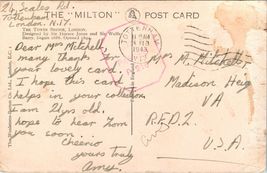 24, Scales Rd.
Tottenham
London. N.17.
THE "MILTON" POST CARD
THE TOWER BRIDGE, LONDON.
Designed by Sir Horace Jones and Sir Wolfe
Dear Mrs Mitchell,
many Thanks for
your lovely card.
I hope this card
helps in your collection
I am 21yrs old.
hope to hear from
you soon.
Cheerio
yours truly
Amy.
TOTTENHAM
1943
Mrs M. Mitchell
Madison Heig
VA
R.F.D. 2
U.S.A.